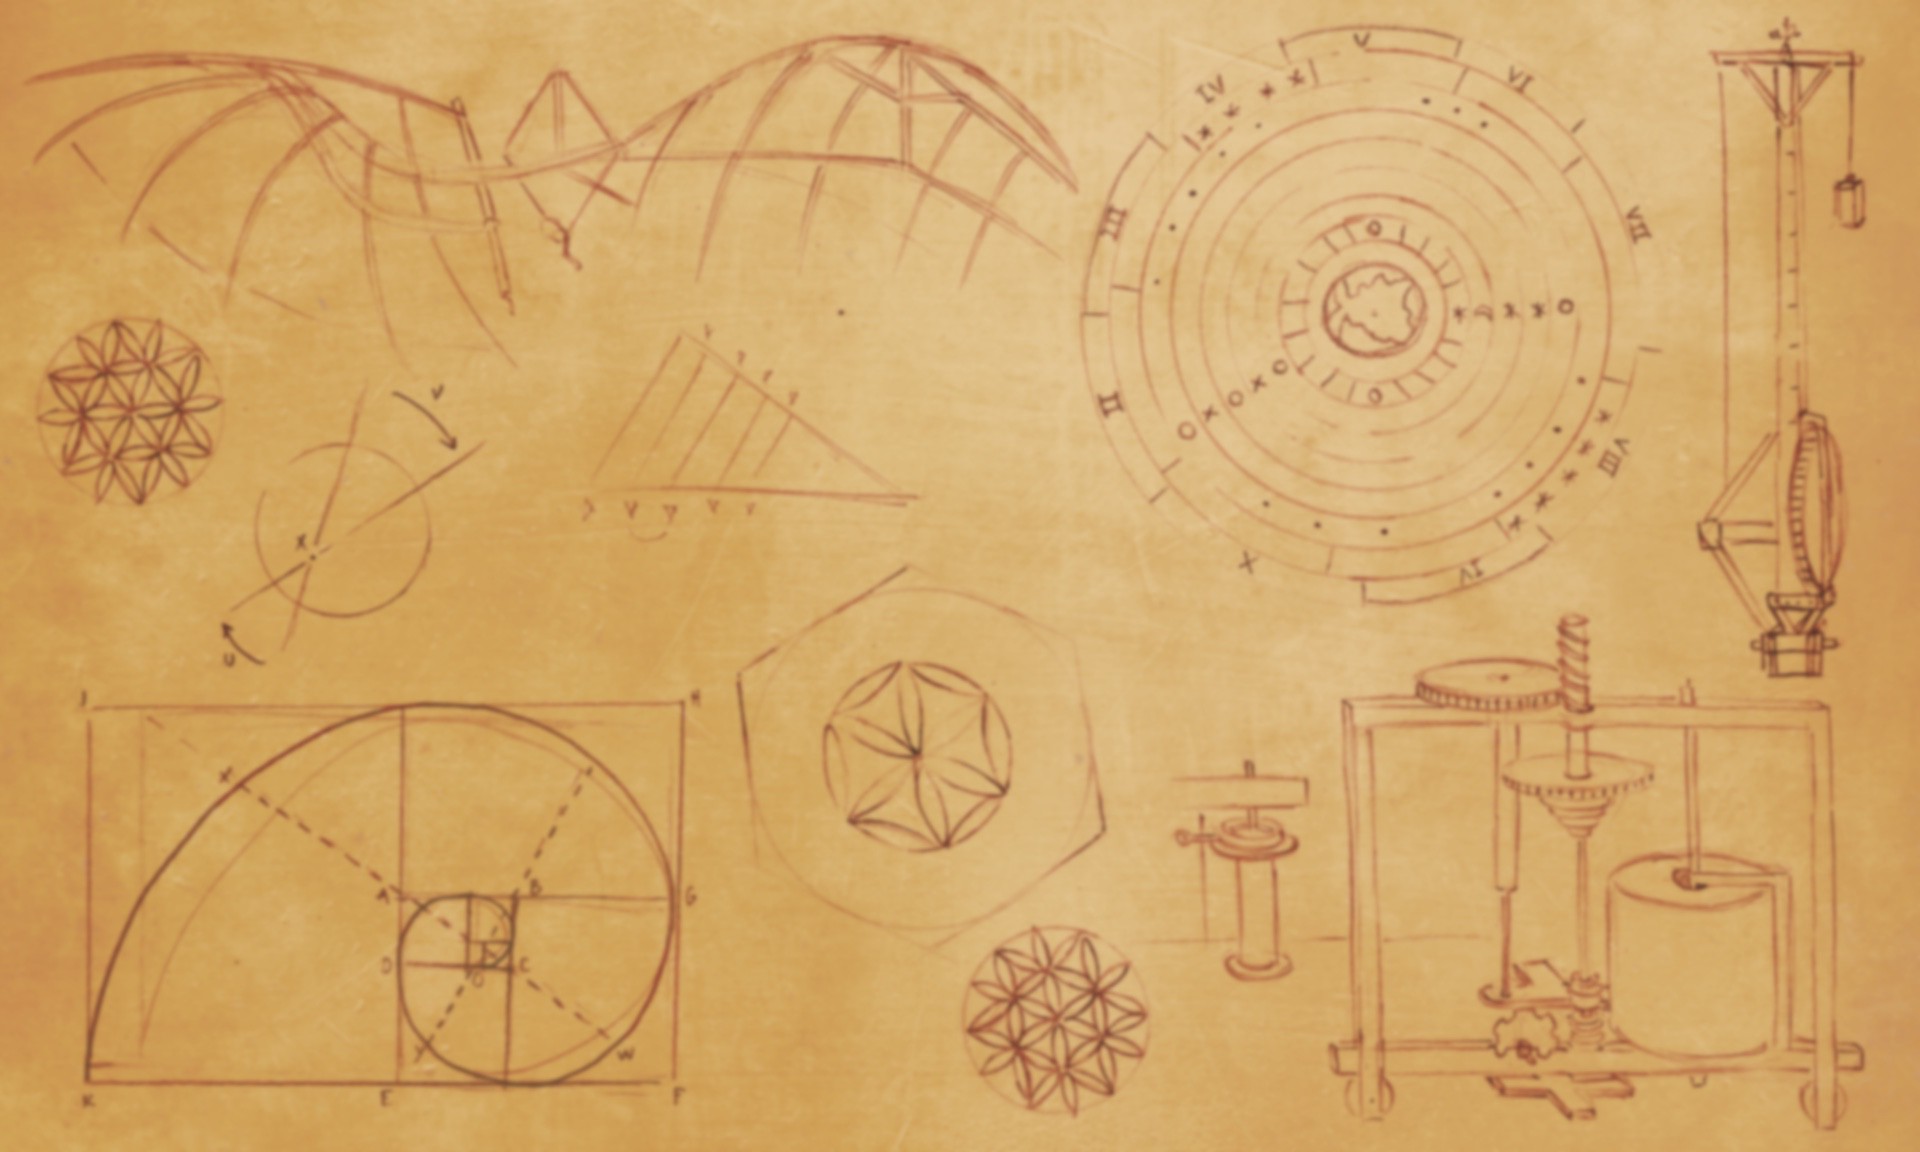 V
IV
VI
III
VII
II
VIII
X
IV
V
X
U
J
H
X
A
B
G
D
C
O
Y
W
K
E
F